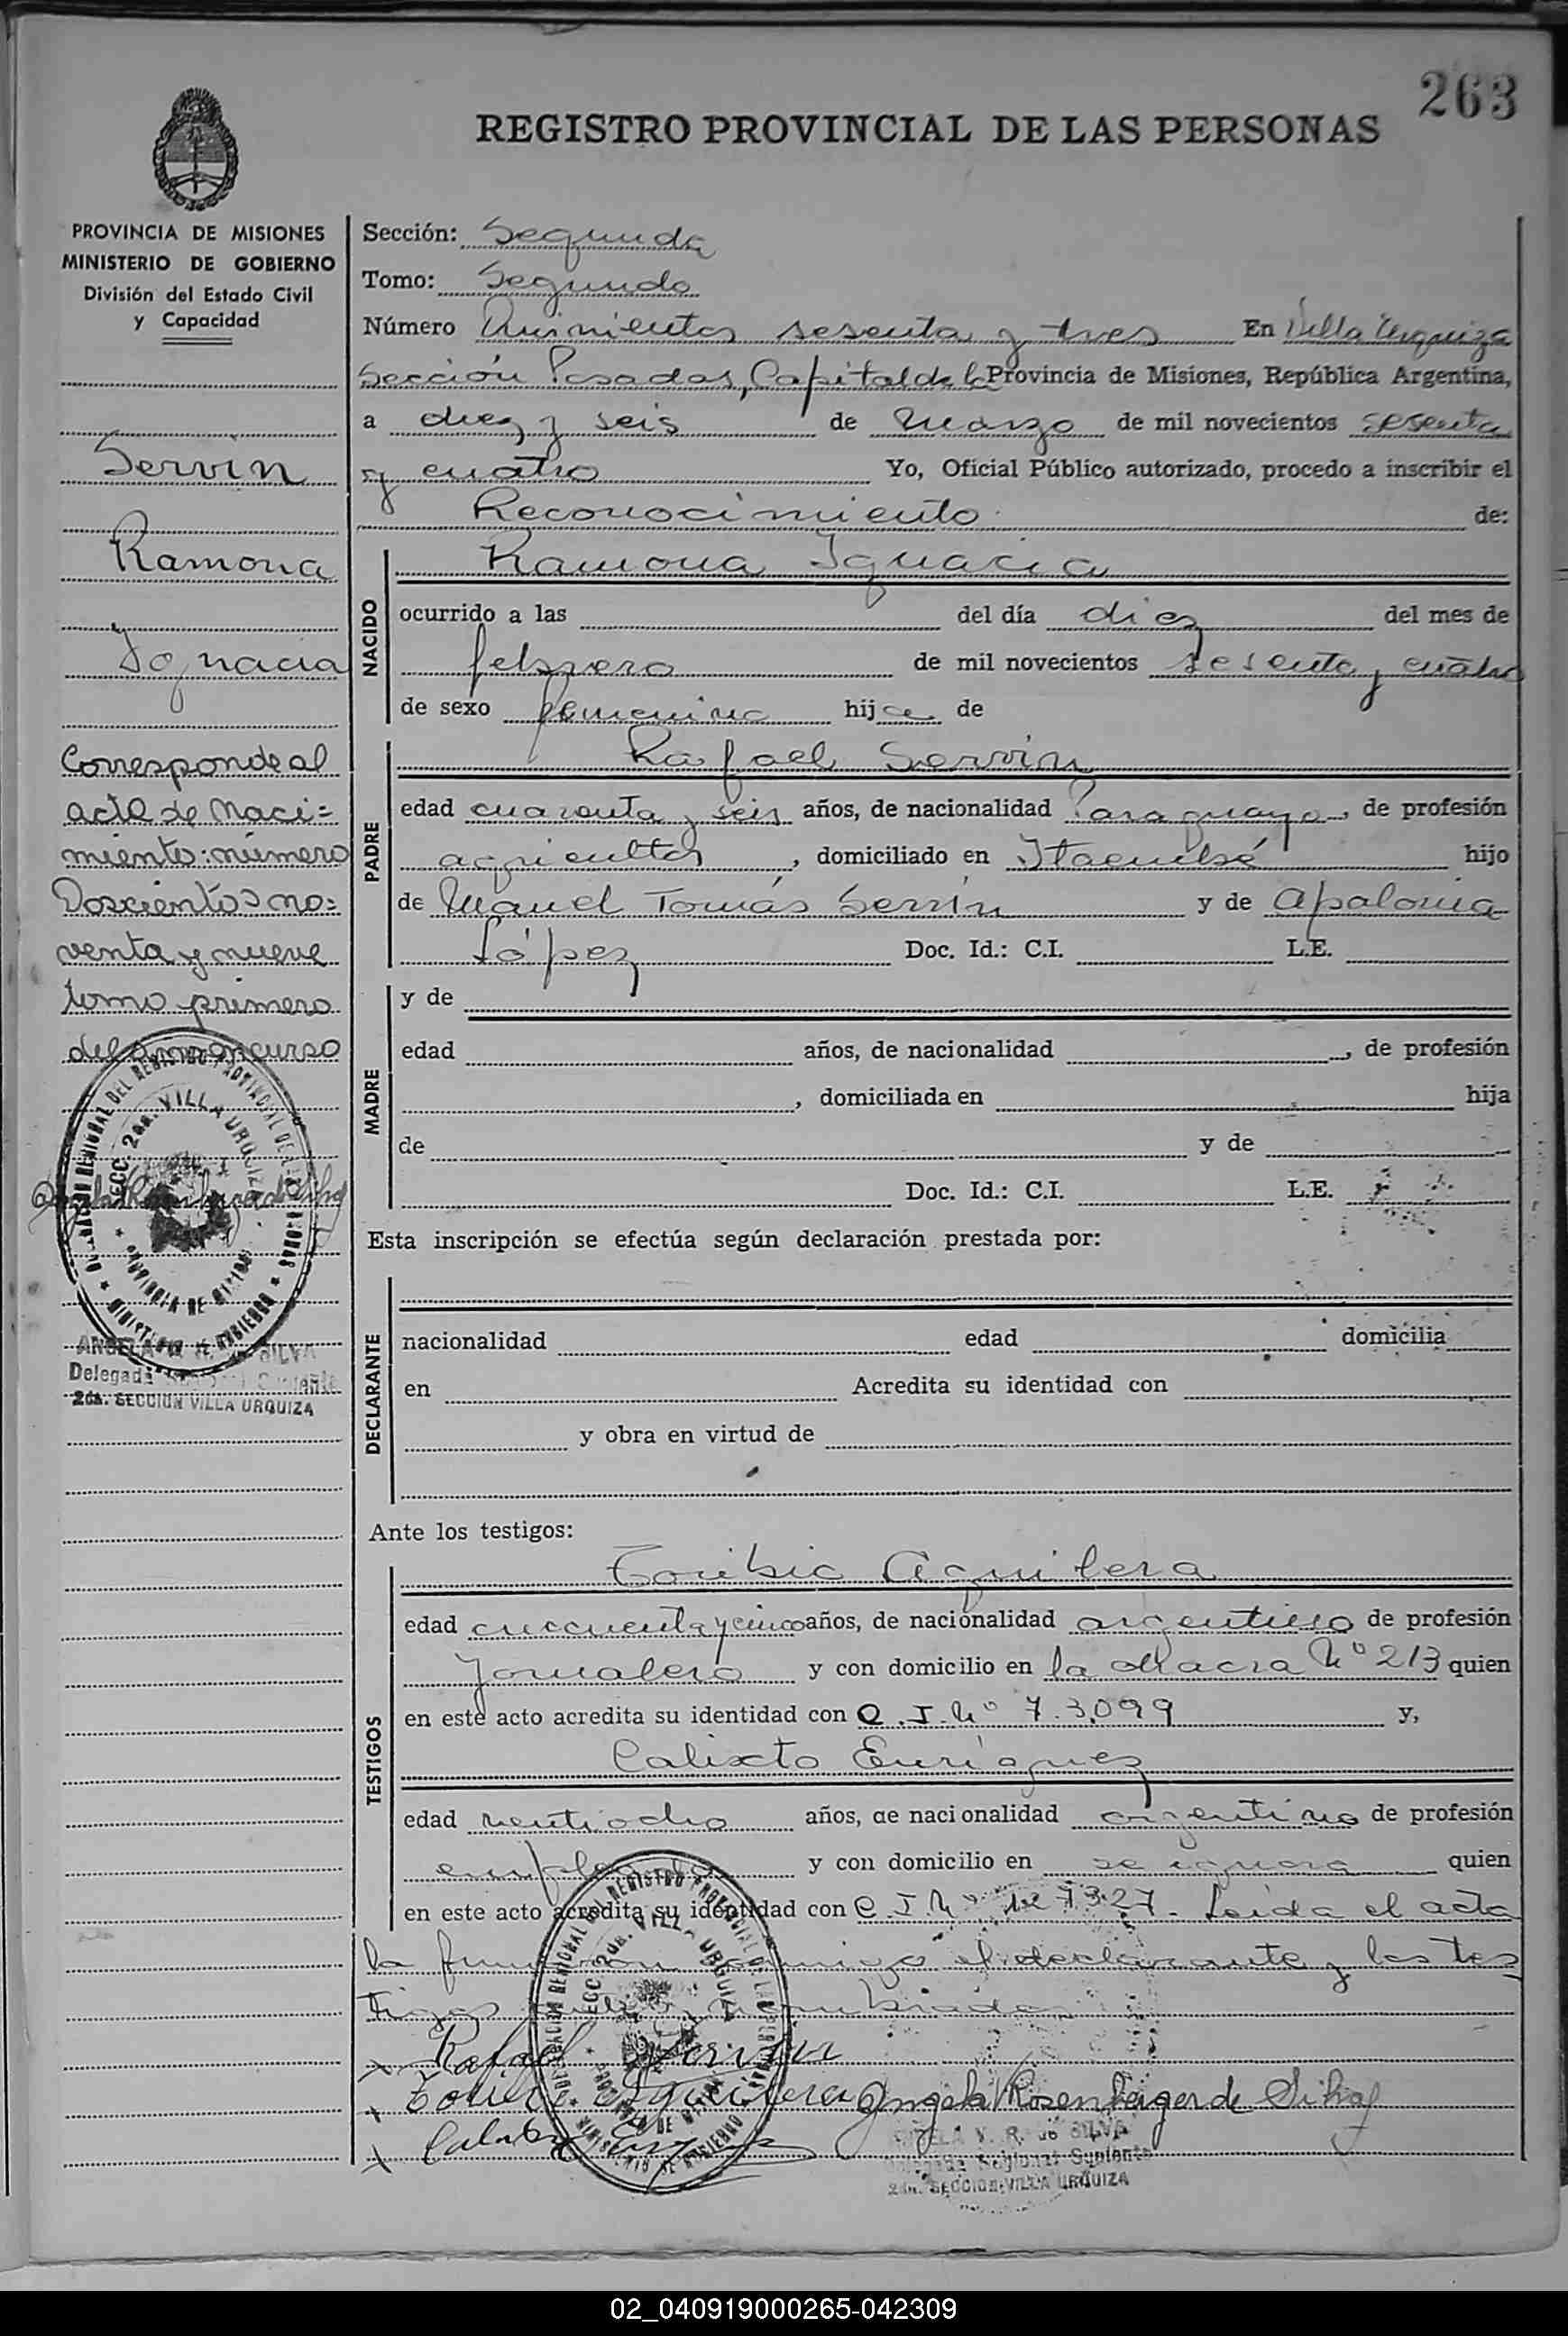 263
REGISTRO PROVINCIAL DE LAS PERSONAS
PROVINCIA DE MISIONES
MINISTERIO DE GOBIERNO
División del Estado Civil
y Capacidad
Servin
Ramona
Ignacia
Corresponde al
acta de Naci=
miento: número
Doscientos no=
venta y nueve
tomo primero
del año en curso
SECC. 2da. VILLA URQUIZA
Delegada
2da. SECCION VILLA URQUIZA
Sección: Segunda
Tomo: Segundo
Número Quinientos sesenta y tres En Villa Urquiza
Sección Posadas, Capital de la Provincia de Misiones, República Argentina,
a diez y seis de Marzo de mil novecientos sesenta
y cuatro Yo, Oficial Público autorizado, procedo a inscribir el
Reconocimiento de:
NACIDO
Ramona Ignacia
ocurrido a las del día diez del mes de
febrero de mil novecientos sesenta y cuatro
de sexo femenino hija de
PADRE
Rafael Servin
edad cuarenta y seis años, de nacionalidad Paraguaya, de profesión
agricultor, domiciliado en Itaembé hijo
de Manuel Tomás Servín y de Apalonia
López Doc. Id.: C.I. L.E.
MADRE
y de
edad años, de nacionalidad , de profesión
, domiciliada en hija
de y de
Doc. Id.: C.I. L.E.
Esta inscripción se efectúa según declaración prestada por:
DECLARANTE
nacionalidad edad domicilia
en Acredita su identidad con
y obra en virtud de
Ante los testigos:
TESTIGOS
Toribio Aguilera
edad cincuenta y cinco años, de nacionalidad argentino de profesión
Jornalero y con domicilio en la chacra Nº 213 quien
en este acto acredita su identidad con C.I. Nº 73.099 y,
Calixto Enriquez
edad veintiocho años, de nacionalidad argentino de profesión
empleado y con domicilio en se ignora quien
en este acto acredita su identidad con C.I. Nº Leida el acta
la firmaron conmigo el declarante y los tes
tigos nombrados
x Rafael Servin
x Toribio Aguilera Angela Rosenberger de Silva
x Calixto
ANGELA V. R. de SILVA
Delegada Regional Suplente
2da. SECCION VILLA URQUIZA
02_040919000265-042309